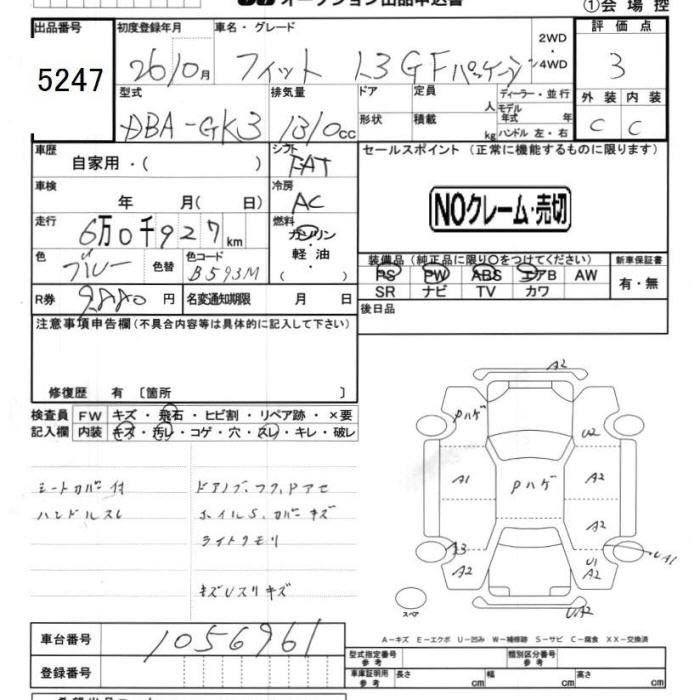 オークション出品申込書
①会場控
出品番号
5247
初度登録年月
26/0月
車名・グレード
フィット 1.3GFパッケージ
2WD
4WD
評価点
3
型式
DBA-GK3
排気量
1310cc
ドア
形状
定員
人
積載
kg
ディーラー・並行
モデル
年式 年
ハンドル 左・右
外装 内装
C C
車歴
自家用・( )
シフト
FAT
セールスポイント (正常に機能するものに限ります)
NOクレーム・売切
車検
年 月( 日)
冷房
AC
走行
6万0千927km
燃料
ガソリン
・
軽油
( )
色
ブルー
色替
色コード
B593M
装備品(純正品に限り○をつけてください)
PS PW ABS エアB AW
SR ナビ TV カワ
新車保証書
有・無
R券
9880円
名変通知期限
月 日
後日品
注意事項申告欄(不具合内容等は具体的に記入して下さい)
修復歴 有 〔箇所 〕
検査員
記入欄
FW キズ・飛石・ヒビ割・リペア跡・×要
内装 キズ・汚レ・コゲ・穴・スレ・キレ・破レ
シートカバー付
ハンドルスレ
ドアノブ,フク,Pアセ
ホイルS.カバーキズ
ライトクモリ
キズUスリキズ
A2
Pハゲ
U2
A1
Pハゲ
A2
A2
A3
A2
U1
A2
UA1
UA2
スペア
A-キズ E-エクボ U-凹み W-補修跡 S-サビ C-腐食 XX-交換済
車台番号
1056961
登録番号
型式指定番号
参考
類別区分番号
参考
車庫証明用
参考
長さ cm
幅 cm
高さ cm